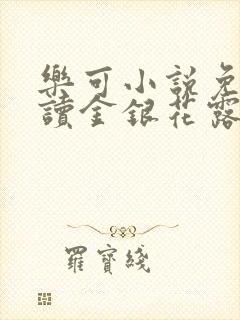 樂可小說免
讀金銀花露
羅寶綫